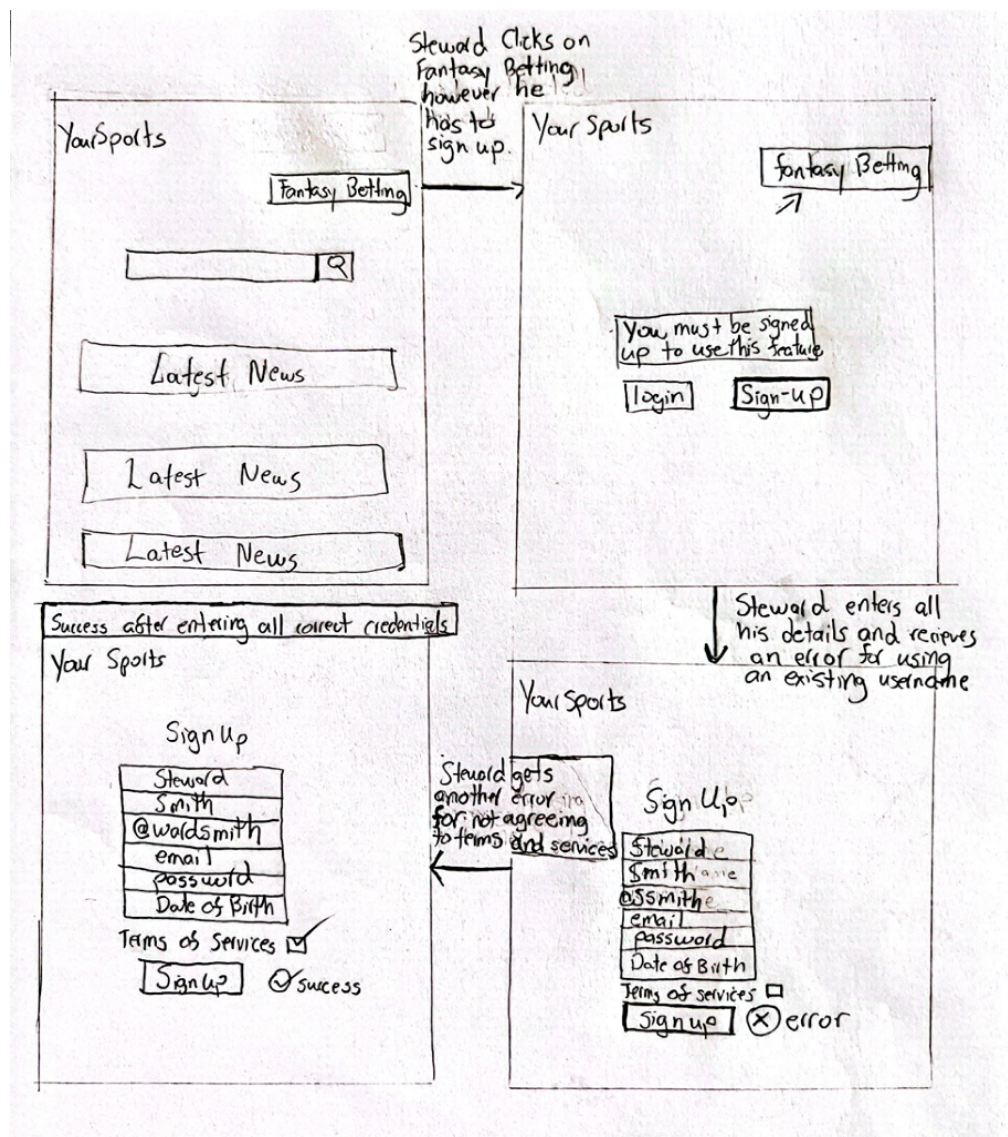 Steward Clicks on
Fantasy Betting
however he
has to
sign up.
YourSports
Fantasy Betting
Latest News
Latest News
Latest News
Your Sports
fantasy Betting
You must be signed
up to use this feature
login
Sign-up
Steward enters all
his details and recieves
an error for using
an existing username
Your Sports
Sign Up
Steward
Smith
@ssmith
email
password
Date of Birth
Terms of services
Sign up
error
Steward gets
another error
for not agreeing
to terms and services
Success after entering all correct credentials
Your Sports
Sign Up
Steward
Smith
@wardsmith
email
password
Date of Birth
Terms of Services
Sign up
Success